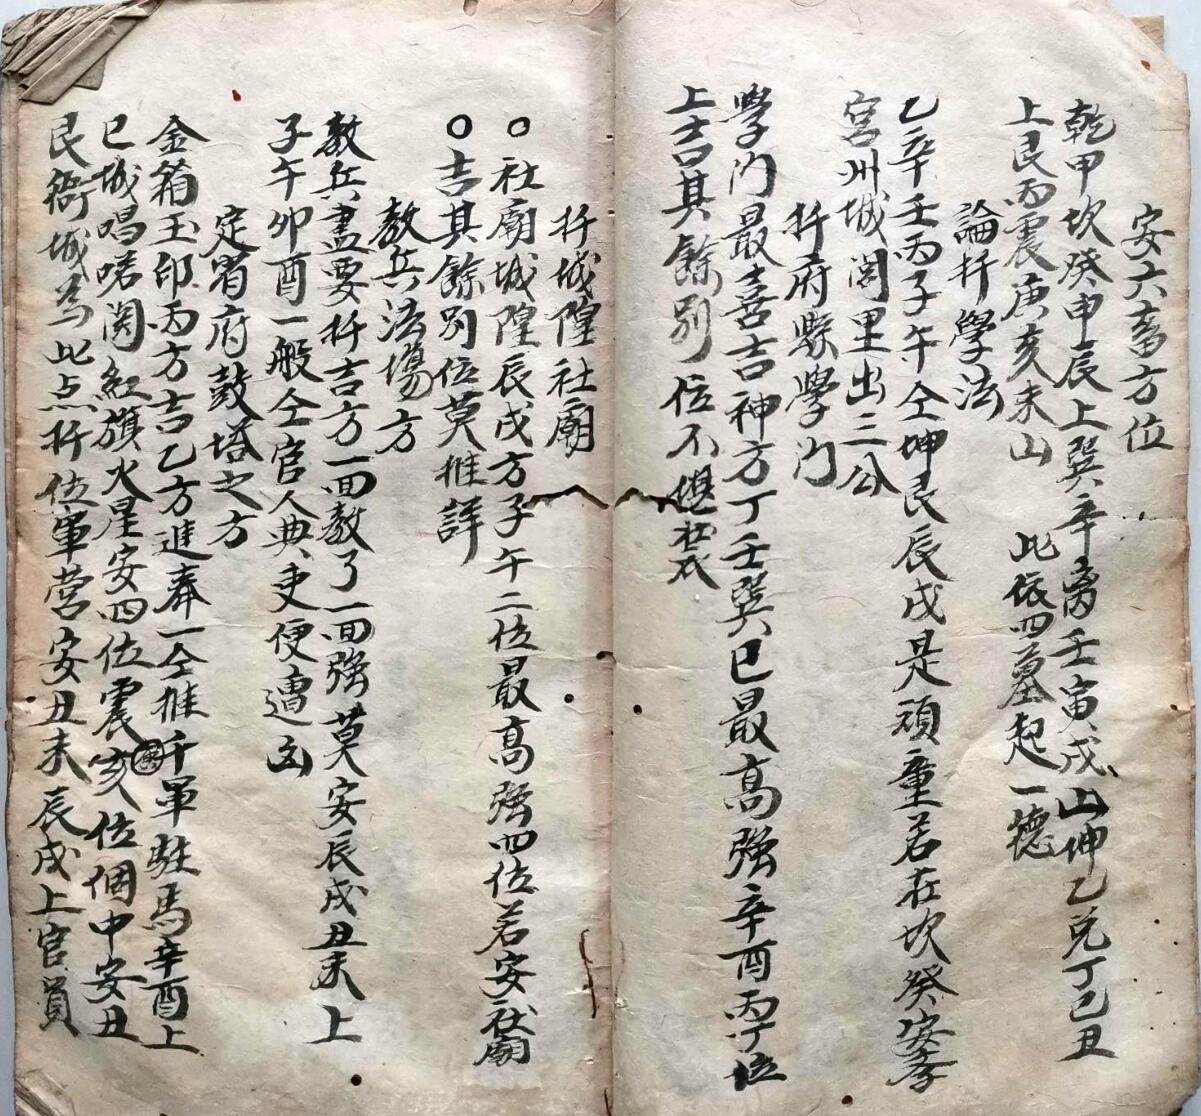 安六畜方位
乾甲坎癸申辰上巽辛离壬寅戌山坤乙兑丁巳丑
上艮丙震庚亥未山 此依四墓起一德
論扦學法
乙辛壬丙子午仝坤艮辰戌是頑童若在坎癸安李
宫州城闾里出三公
扦府縣學门
學门最喜吉神方丁壬巽巳最高強辛酉丙丁位
上吉其餘别位不堪裝
扦城隍社廟
○社廟城隍辰戌方子午二位最高強四位若安廟
○吉其餘别位莫推詳
教兵法場方
教兵盡要扦吉方一回教了一回強莫安辰戌丑未上
子午卯酉一般仝官人典吏便遭凶
定省府鼓塔之方
金箱玉印丙方吉乙方進奉一仝推千軍駐馬辛酉上
巳城唱喏閱紅旗火星安四位震亥位個中安丑
艮衙城為此点扦位軍营安丑未辰戌上官員